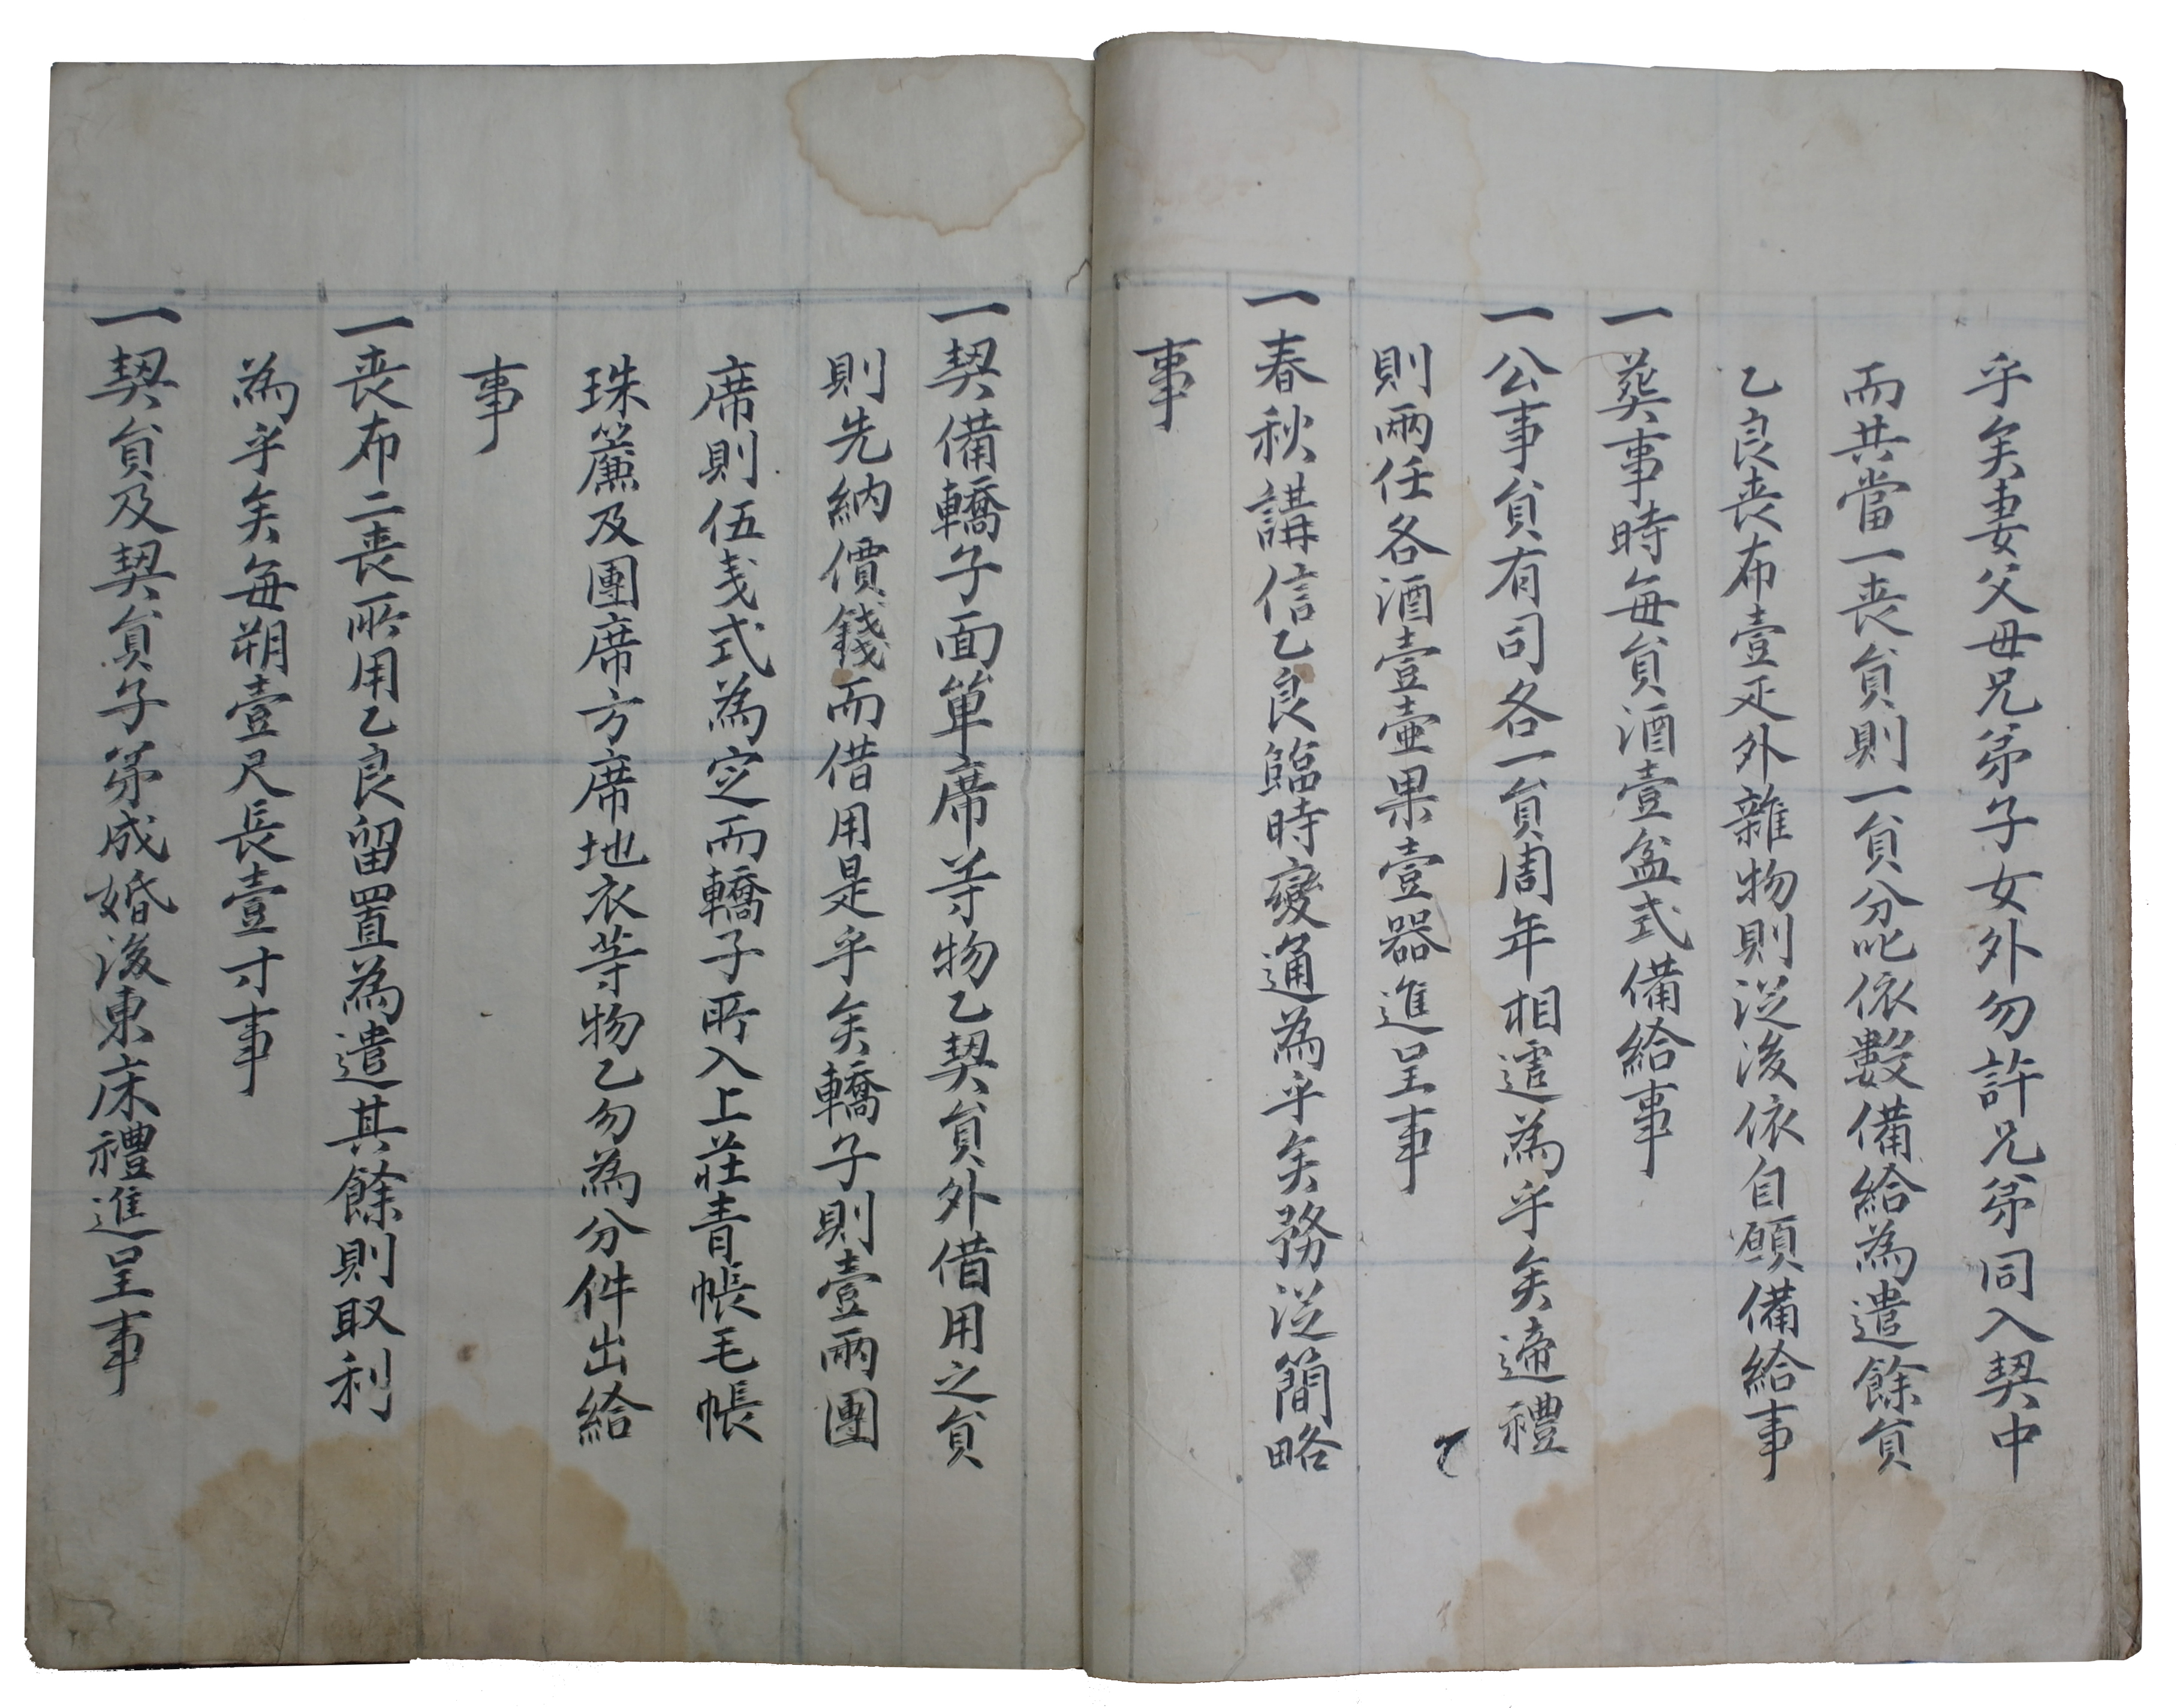 乎矣妻父母兄弟子女外勿許兄弟同入契中
而共當一喪貟則一貟分叱依數備給為遣餘貟
乙良喪布壹疋外雜物則從後依自願備給事
一葬事時每貟酒壹盆式備給事
一公事貟有司各一貟周年相遆為乎矣遆禮
則兩任各酒壹壷果壹器進呈事
一春秋講信乙良臨時變通為乎矣務從簡略
事
一契備轎子面單席等物乙契貟外借用之貟
則先納價錢而借用是乎矣轎子則壹兩團
席則伍戔式為定而轎子所入上莊青帳毛帳
珠簾及團席方席地衣等物乙勿為分件出給
事
一喪布二喪所用乙良留置為遣其餘則取利
為乎矣每朔壹尺長壹寸事
一契貟及契貟子弟成婚後東床禮進呈事